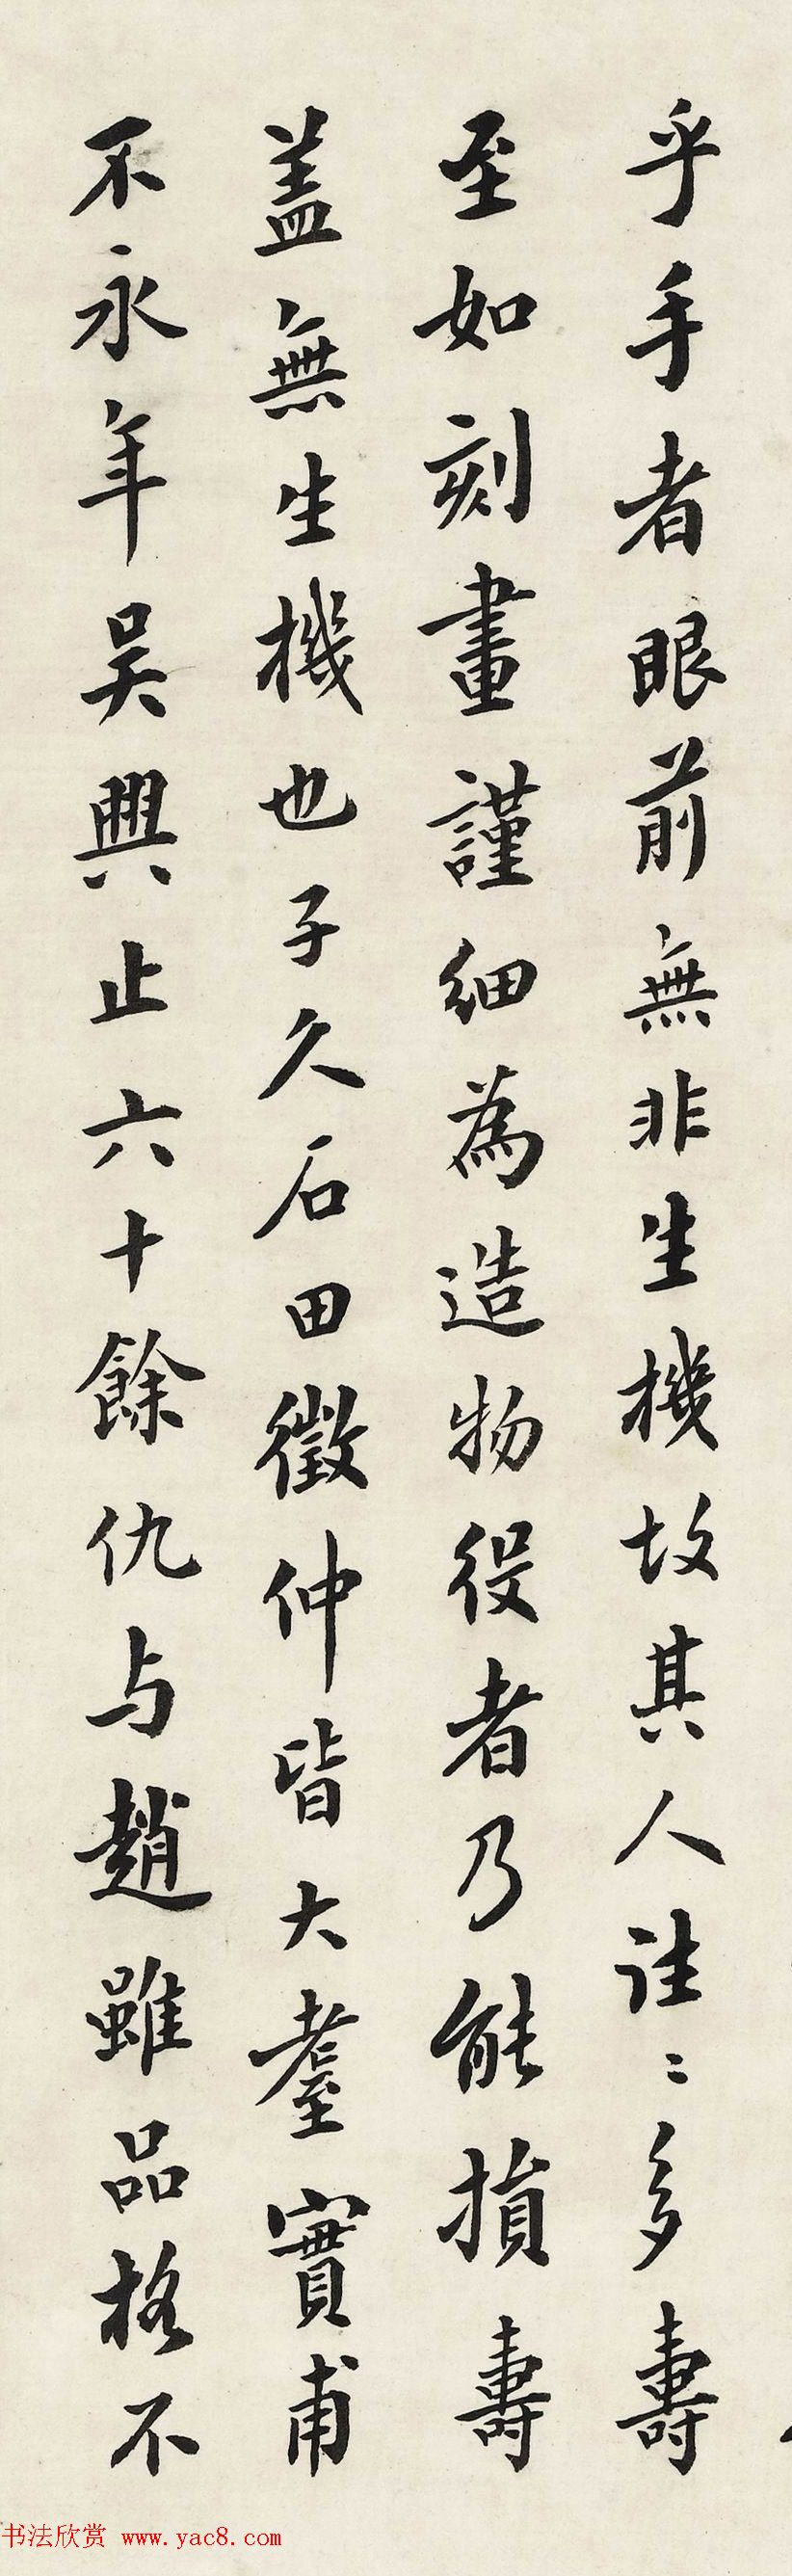 乎手者眼前無非生機故其人往〻多壽
至如刻畫謹細為造物役者乃能損壽
蓋無生機也子久石田徵仲皆大耋實甫
不永年吳興止六十餘仇与趙雖品格不
书法欣赏 www.yac8.com